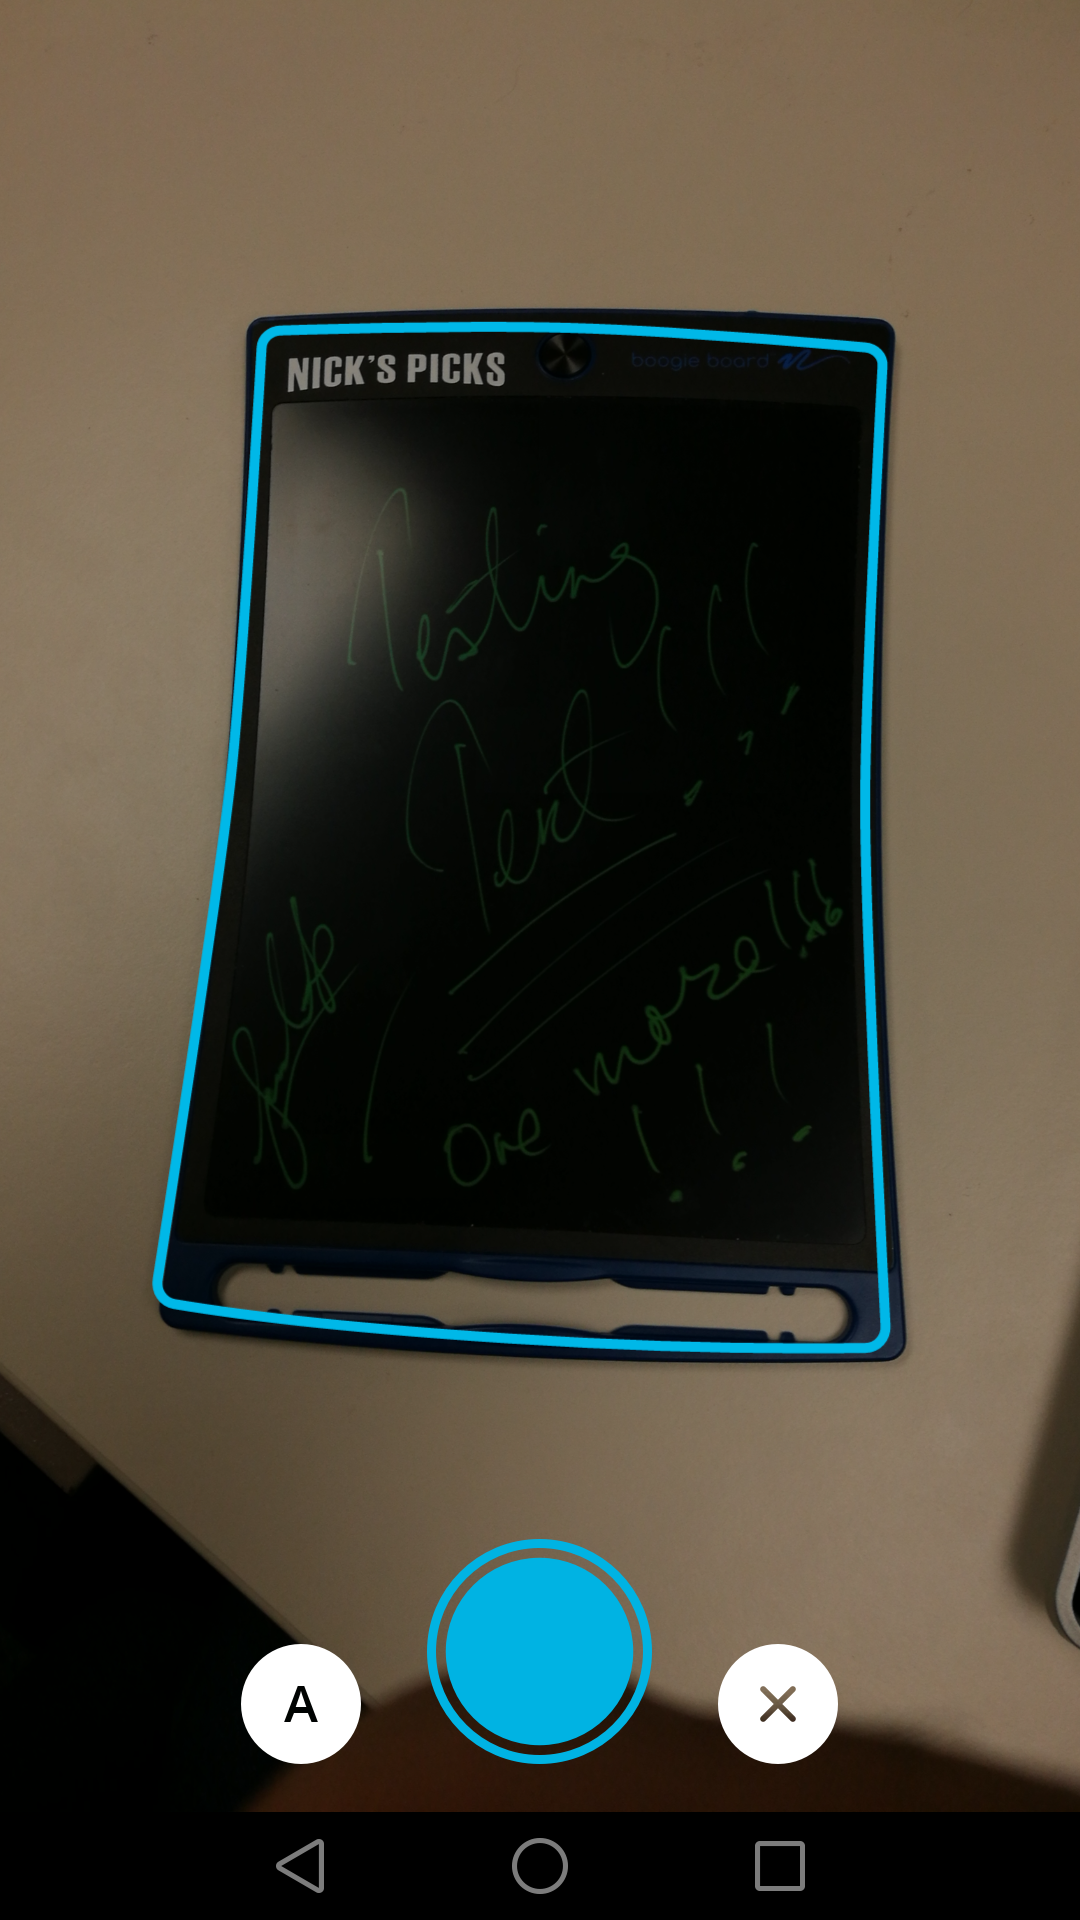 NICK'S PICKS
boogie board
Testing
Text!!!
One more!!!
!!!
A